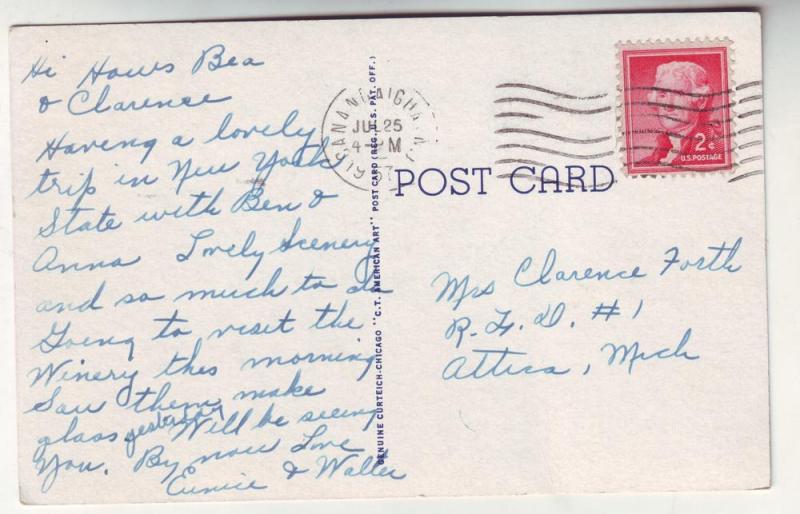 Hi Hows Bea
& Clarence
Having a lovely
trip in New York
State with Ben &
Anna Lovely Scenery
and so much to do
Going to visit the
Winery this morning
Saw them make
glass yesterday Will be seeing
You. By now Love
Eunice & Walter
GENUINE CURTEICH-CHICAGO "C.T. AMERICAN ART" POST CARD (REG. U.S. PAT. OFF.)
CANANDAIGUA, N.Y.
JUL 25
4 - PM
POST CARD
2¢
U.S. POSTAGE
Mrs Clarence Forth
R.F.D. #1
Attica, Mich